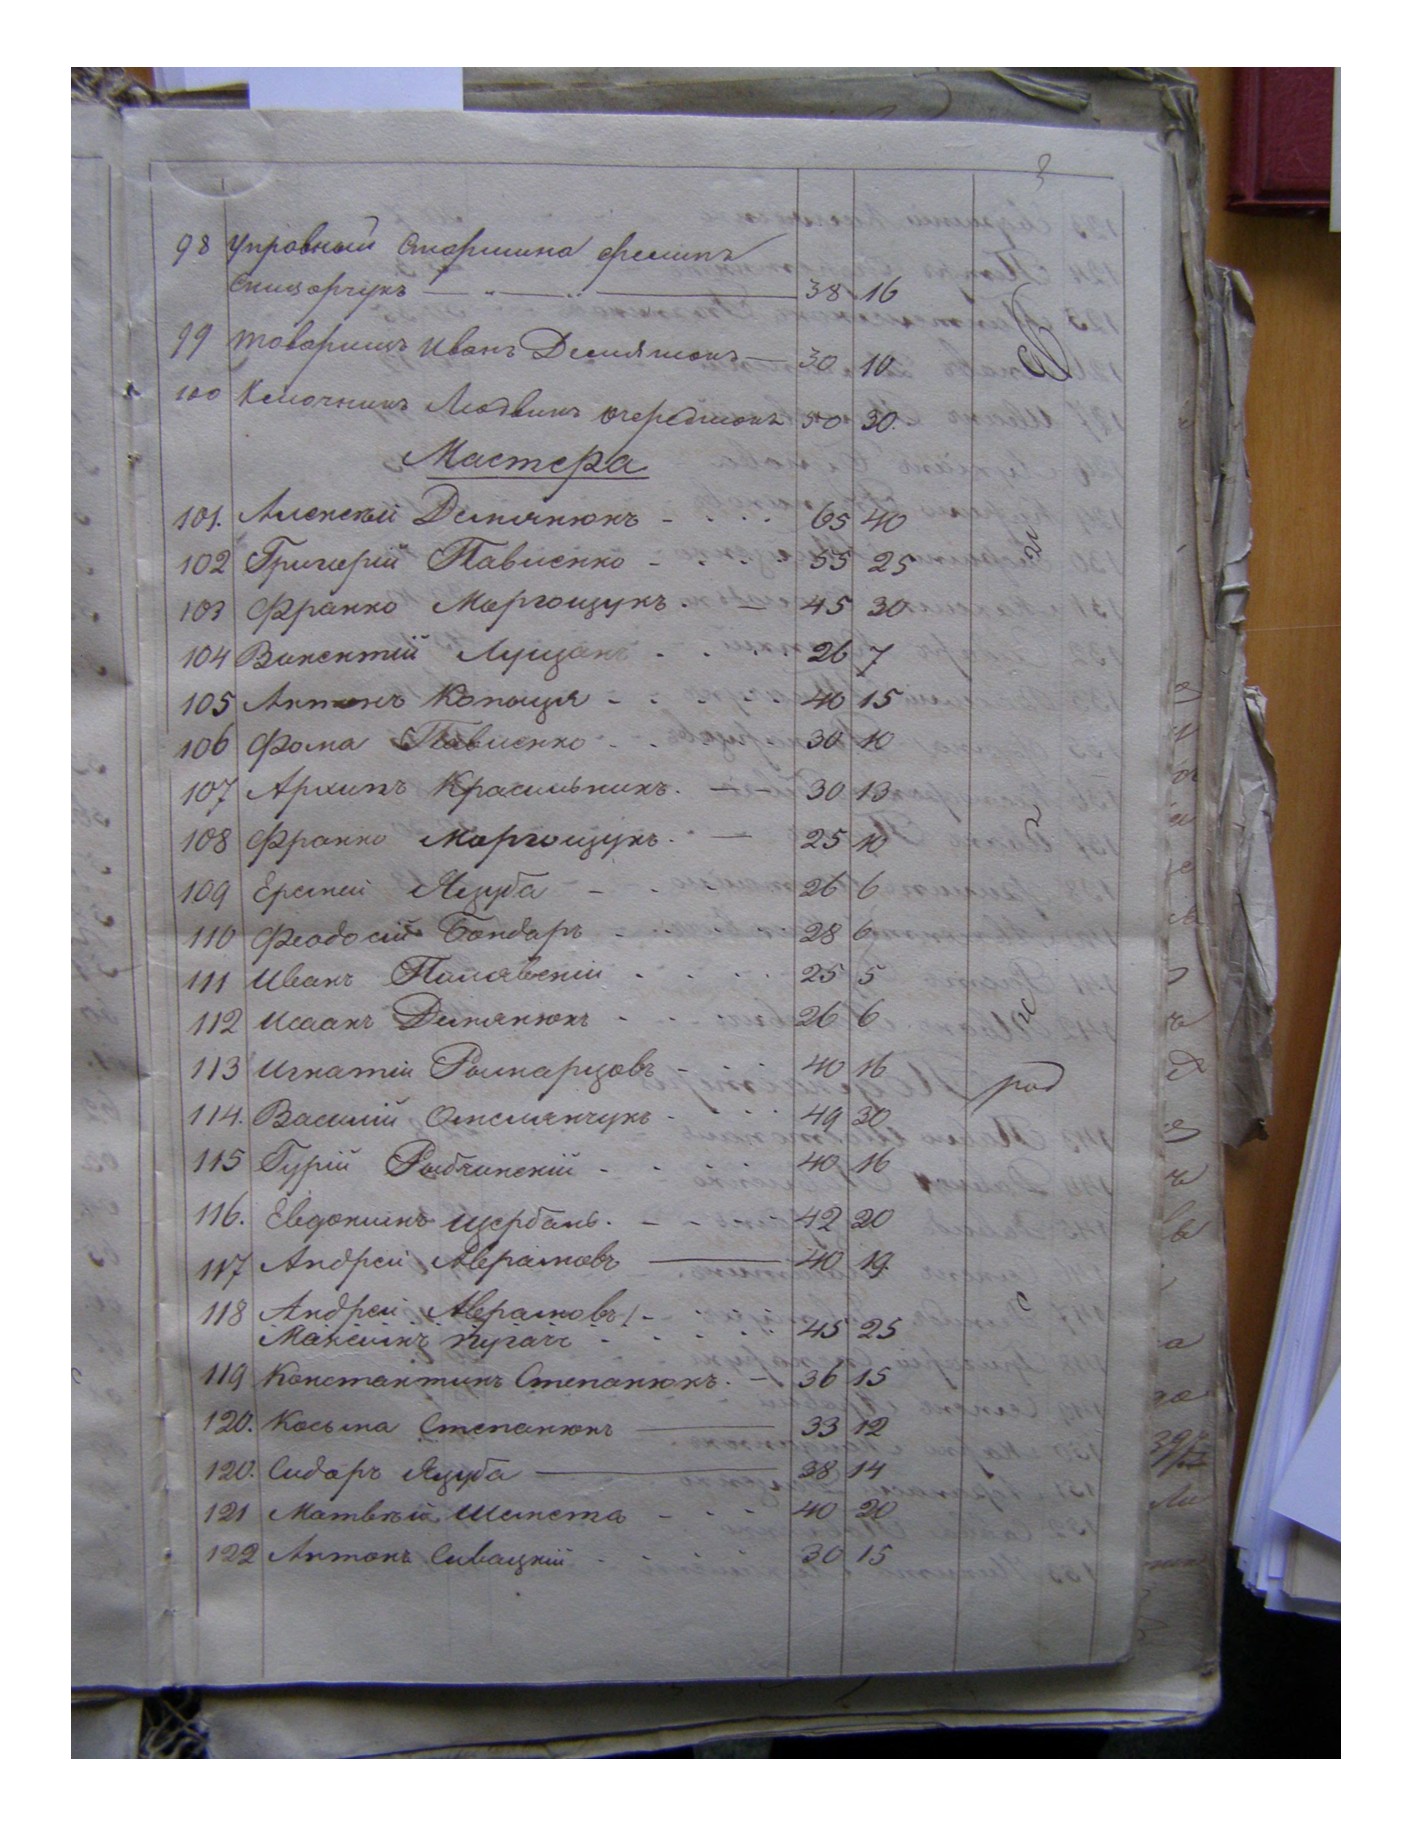 98 Управный Старшина Филипъ
Сницарчукъ — „ — „ — 38 16
99 товарищъ Иванъ Демянюкъ — 30 10
100 Ключникъ Людвикъ 50 30.
Мастера
101. Алексѣй Демянюкъ - . . . 65 40
102 Григорій Павленко - . . . 55 25
103 Франко Моргощукъ. — 45 30
104 Викентій Лущакъ . . . 26 7
105 Антонъ Копыця - - . . . 40 15
106 Фома Павленко - . . 30 10
107 Архипъ Красильникъ. — - 30 13
108 Франко Моргощукъ. — 25 10
109 Еремей Яцуба - . 26 6
110 Феодосій Бондаръ - . . 28 6
111 Иванъ Полявскій . . . . 25 5
112 Исаакъ Демянюкъ - - . . 26 6
113 Игнатій Рымарцовъ - . . 40 16
рад
114. Василій Омелянчукъ - . . . 49 30
115 Гурій Рыбчинскій - . . . 40 16
116. Евдокимъ Щербань. - - - . 42 20
117 Андрей Аврамовъ — 40 19
118 Андрей Аврамовъ/ - . . .
Максимъ Пугачъ - - . . . 45 25
119 Константинъ Степанюкъ. - 36 15
120. Косьма Степанюкъ — 33 12
120. Сидоръ Яцуба — 38 14
121 Матвѣй Шелета - - - 40 20
122 Антонъ Сивацкій - - . . . 30 15